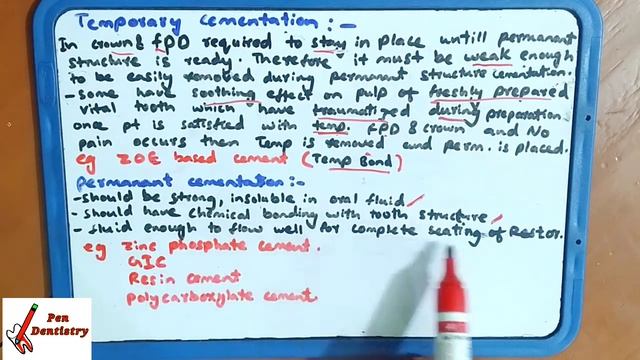 Temporary cementation :-
In crown & fPD required to stay in place untill permanant
structure is ready. Therefore it must be weak enough
to be easily removed during permanant structure cementation.
- Some have soothing effect on pulp of freshly prepared
vital tooth which have traumatized during preparation
one pt is satisfied with temp. FPD & crown and No
pain occurs then Temp is removed and perm. is placed.
eg ZOE based cement (Temp Bond)
permanant cementation :-
- should be strong, insoluble in oral fluid
- should have chemical bonding with tooth structure
- fluid enough to flow well for complete seating of Restor.
eg zinc phosphate cement.
GIC
Resin cement
polycarboxylate cement
Pen
Dentistry